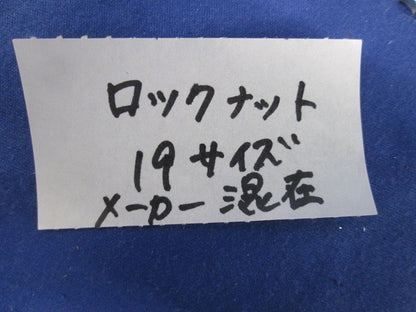 ロックナット
19サイズ
メーカー混在